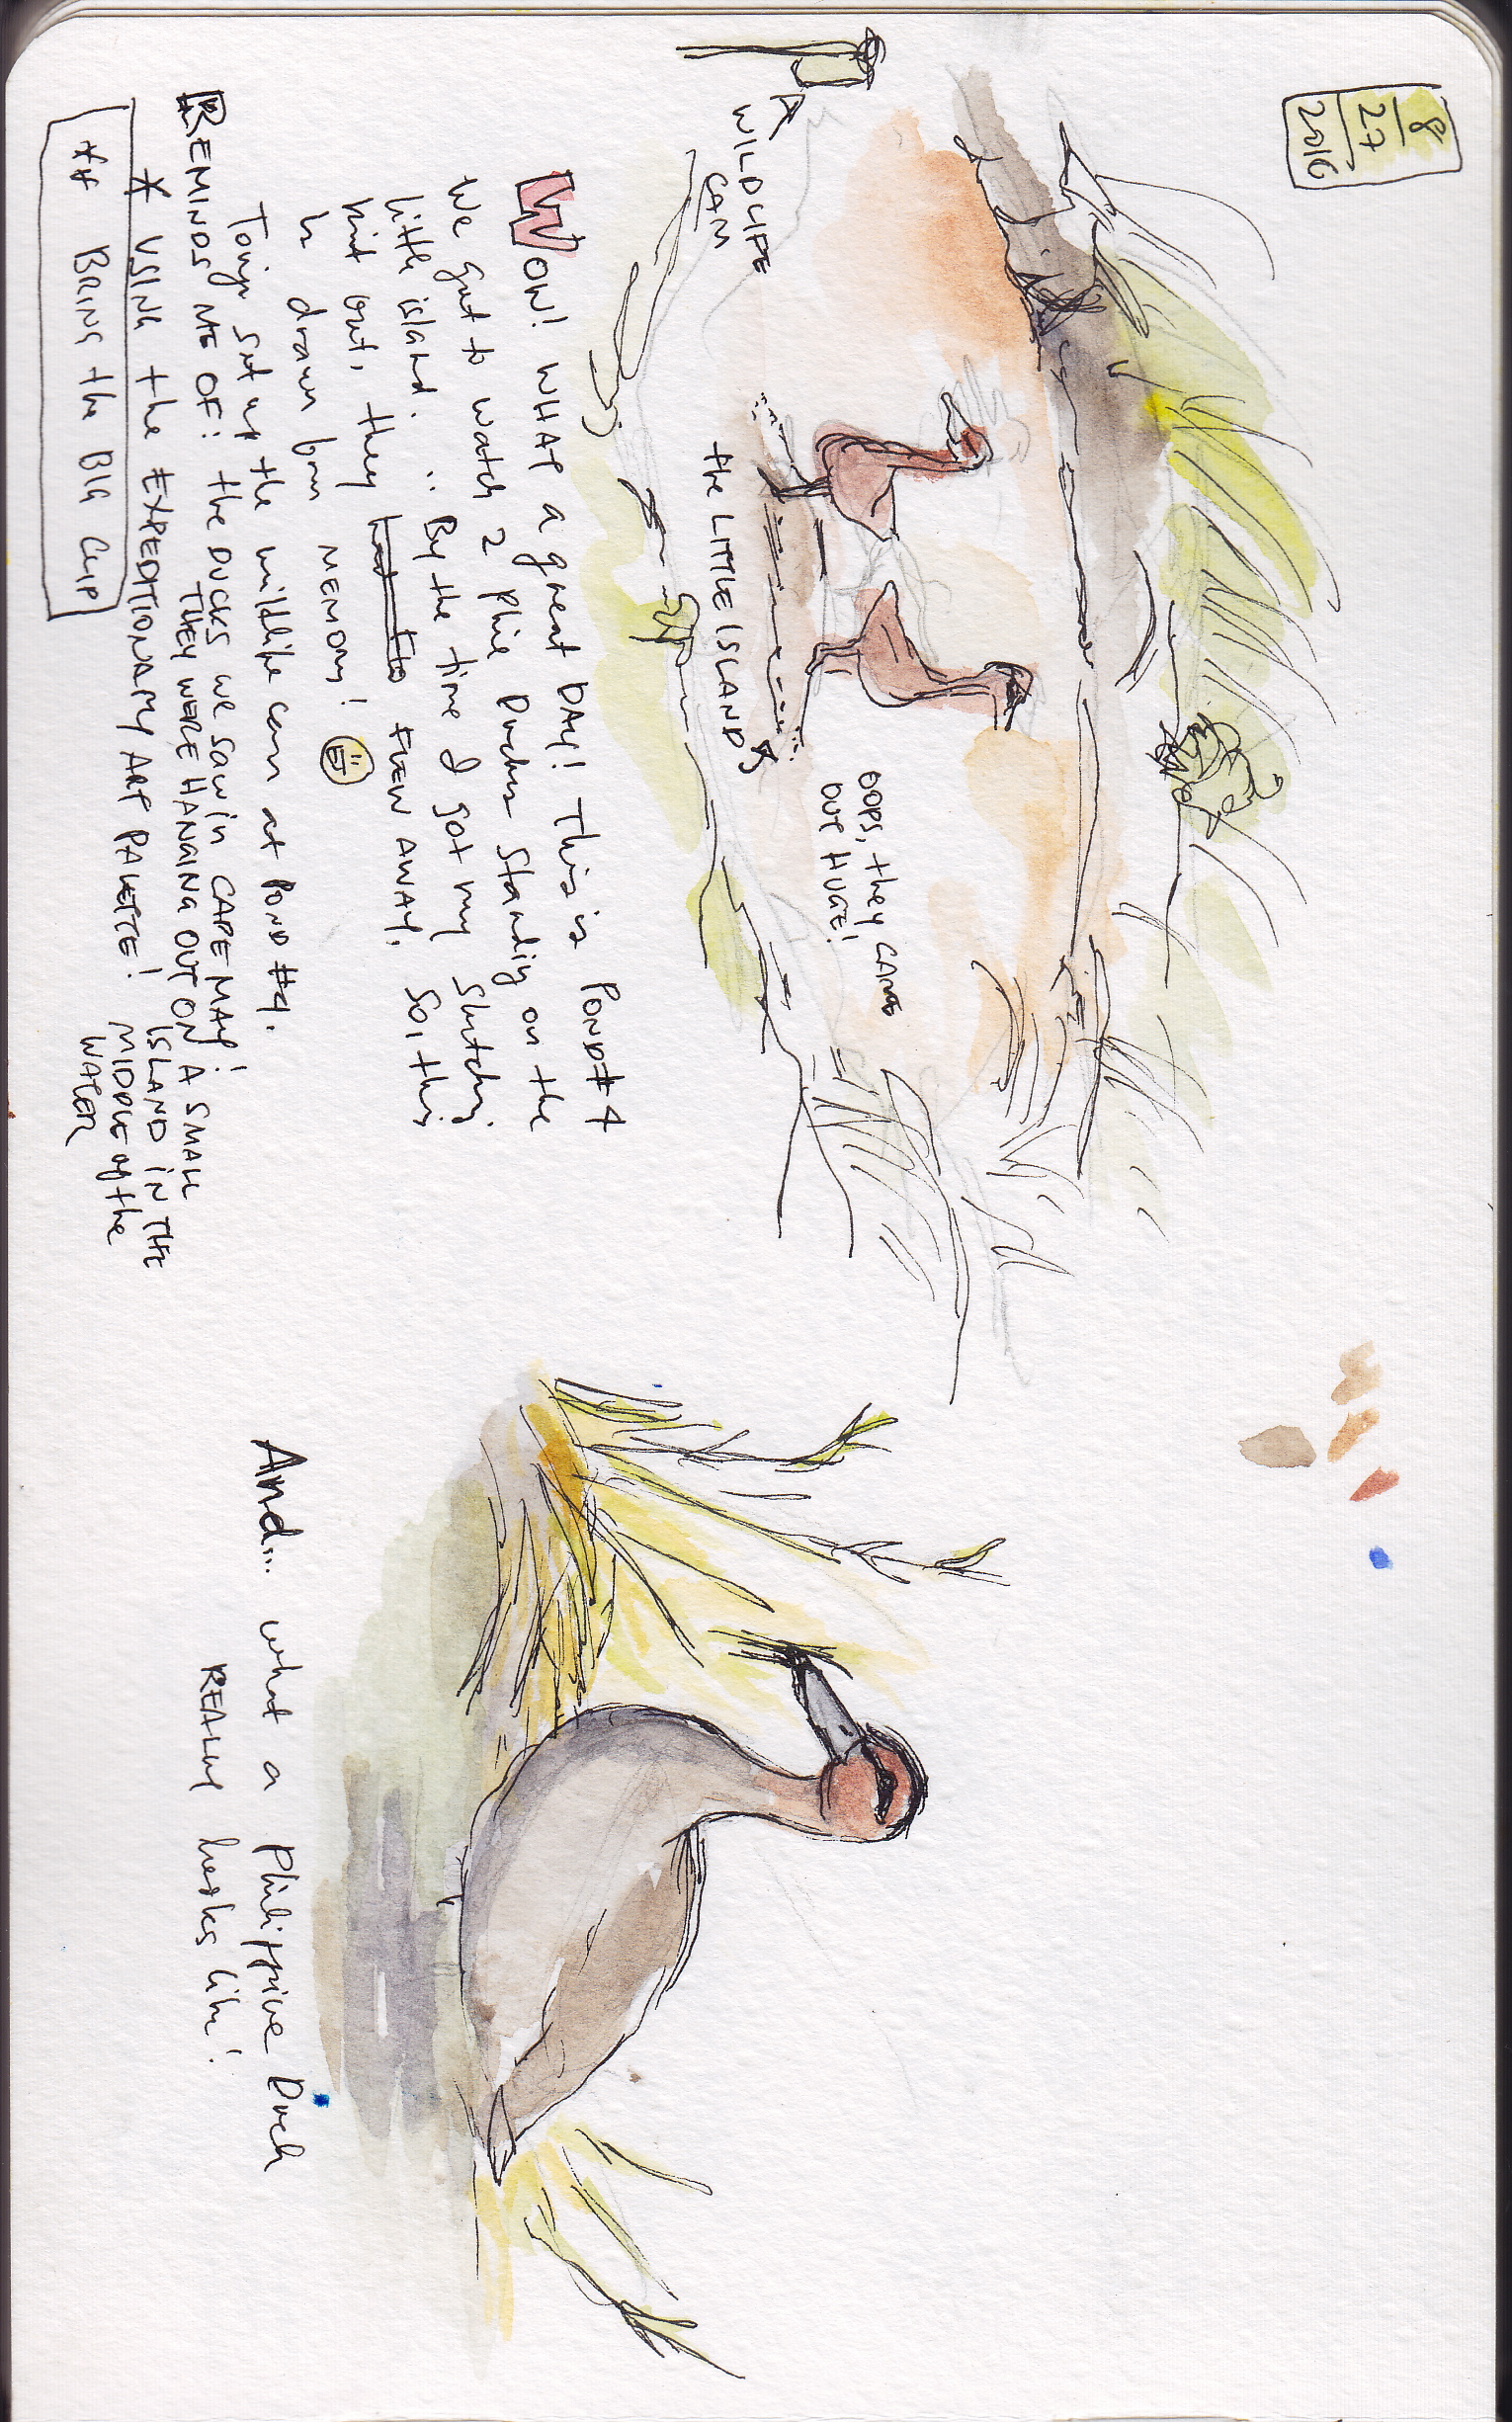 8
27
2016
WILDLIFE
CAM
the LITTLE ISLAND
OOPS, they CAME
OUT HUGE!
WOW! WHAT a great DAY! This is POND #4
We got to watch 2 Phil Ducks standing on the
little island. .. By the time I got my sketching
kit out, they had to FLEW AWAY. So, this
is drawn from MEMORY!
Tonji set up the wildlife cam at POND #4.
REMINDS ME OF: the DUCKS we saw in CAPE MAY!
THEY WERE HANGING OUT ON A SMALL
ISLAND IN THE
MIDDLE of the
WATER
* USING the EXPEDITIONARY ART PALETTE!
** BRING the BIG CLIP
And... what a Philippine Duck
REALLY looks like!